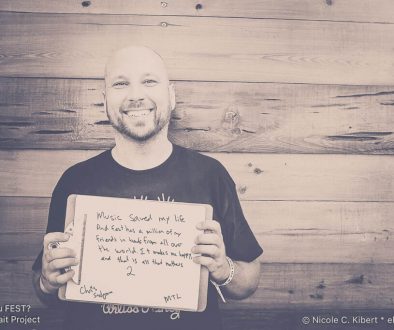 Music Saved my life
And Fest has a million of my
friends in bands from all over
the world. It makes me happy
and that is all that matters
2
Chris
MTL
u FEST?
ait Project
© Nicole C. Kibert * el